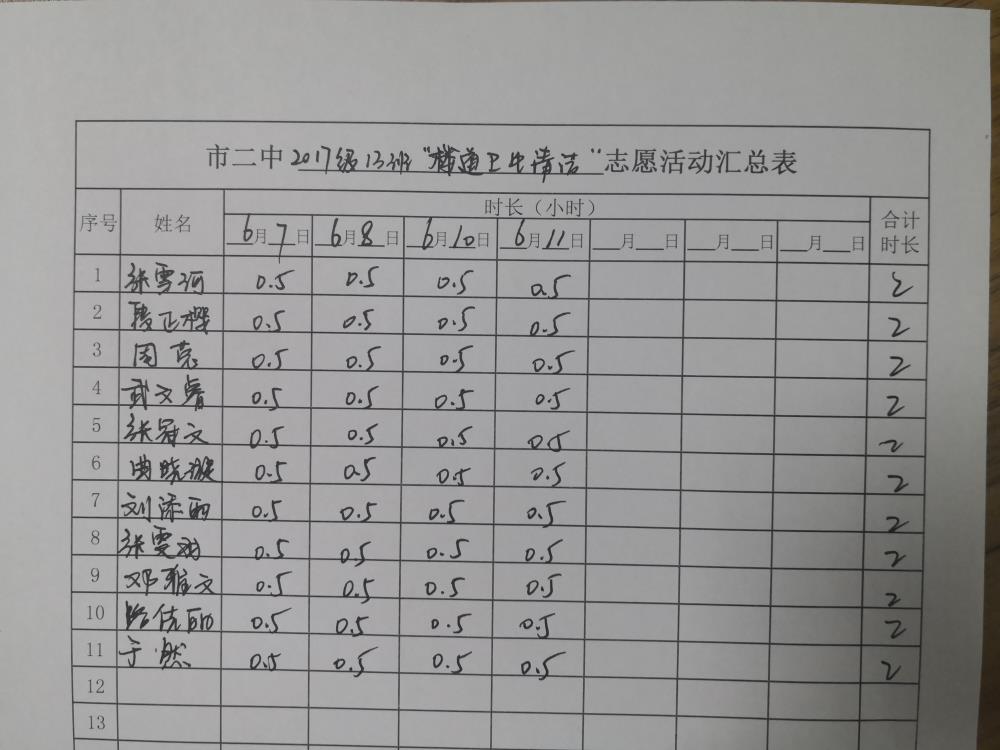 市二中2017级13班“楼道卫生清洁”志愿活动汇总表
序号 姓名 时长（小时） 合计时长
6月7日 6月8日 6月10日 6月11日 月 日 月 日 月 日
1 张雪河 0.5 0.5 0.5 0.5 2
2 0.5 0.5 0.5 0.5 2
3 周 0.5 0.5 0.5 0.5 2
4 武文睿 0.5 0.5 0.5 0.5 2
5 张冠文 0.5 0.5 0.5 0.5 2
6 曲晓璇 0.5 0.5 0.5 0.5 2
7 刘添雨 0.5 0.5 0.5 0.5 2
8 张雯 0.5 0.5 0.5 0.5 2
9 邓雅文 0.5 0.5 0.5 0.5 2
10 0.5 0.5 0.5 0.5 2
11 于燃 0.5 0.5 0.5 0.5 2
12
13